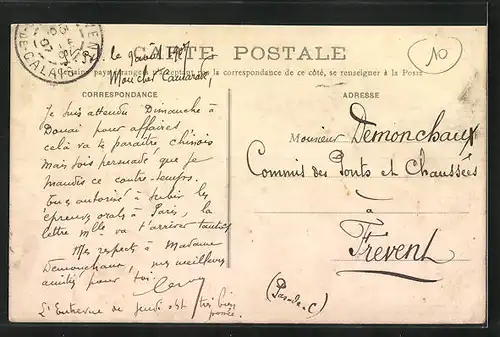 CARTE POSTALE
le 9 août 1907
pays étrangers n'acceptant pas la correspondance de ce côté, se renseigner à la Poste
Mon cher Camarade,
CORRESPONDANCE
ADRESSE
Je suis attendu Dimanche à
Douai pour affaires
celà va te paraître chinois
mais sois persuadé que je
maudis ce contre-temps.
autorisé à subir les
épreuves orales à Paris, la
lettre Mlle va t'arriver tantôt
Mes respects à Madame
Demonchaux, mes meilleures
amitiés pour toi.
L'Entrevue de jeudi est très bien
Monsieur Demonchaux
Commis des Ponts et Chaussées
à
Frévent
(Pas-de-C)
10
DE-CALAIS